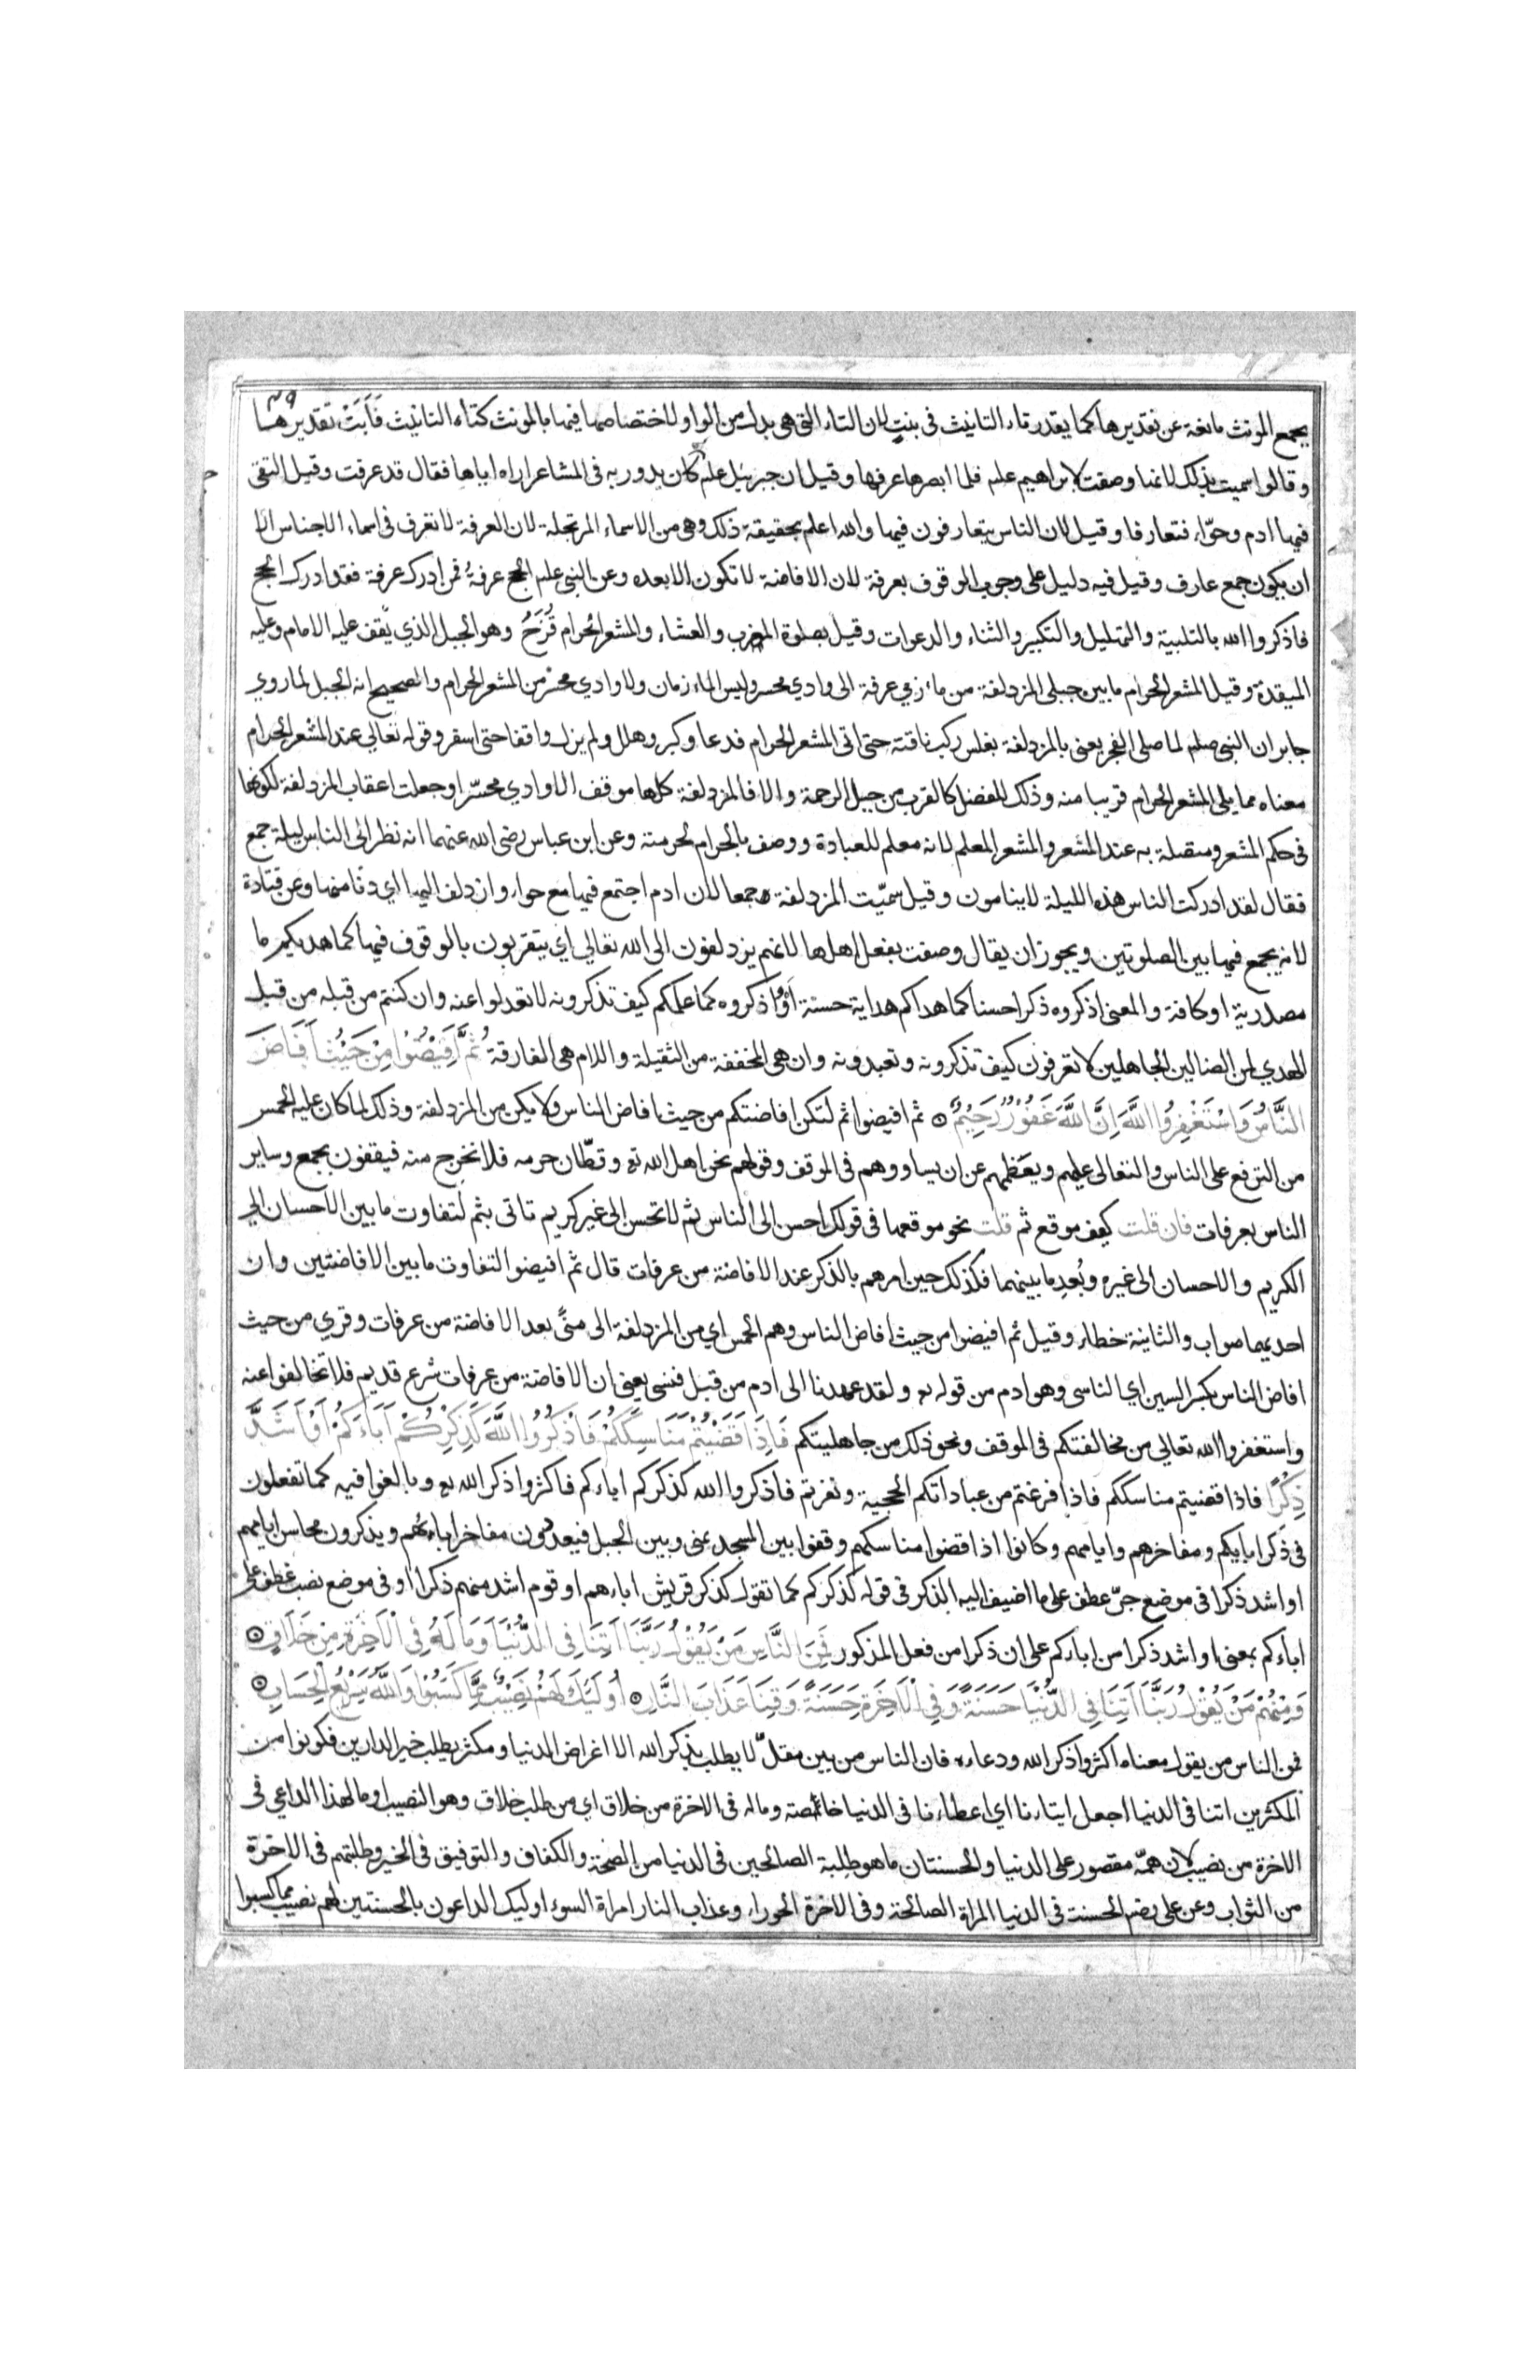 ٧٩
يجمع المونث مانعة عن تقديرها كما يقدر تاء التانيث فى بنت لان التاء التى هى بدل من الواو لاختصاصها فيها بالمونث كتاء التانيث فَاَبَتْ تقديرها
وقالوا سميت بذلك لانها وصفت لابراهيم علم فلما ابصرها عرفها وقيل ان جبرئيل علم كان يدور به فى المشاعر اراه اياها فقال قد عرفت وقيل التقى
فيها ادم وحوّاء فتعارفا وقيل لان الناس يتعارفون فيها والله اعلم بحقيقة ذلك وهى من الاسماء المرتجلة لان العرفة لا تعرف فى اسماء الاجناس الا
ان يكون جمع عارف وقيل فيه دليل على وجوب الوقوف بعرفة لان الافاضة لا تكون الا بعده وعن النبى علم الحج عرفةُ فمن ادرك عرفة فقد ادرك الحج
فاذكروا الله بالتلبية والتهليل والتكبير والثناء والدعوات وقيل بصلوة المغرب والعشاء والمشعر الحرام قُزَحُ وهو الجبل الذي يقف عليه الامام وعليه
الميقدة وقيل المشعر الحرام ما بين جبلى المزدلفة من مازمي عرفة الى وادي محسر وليس الماء زمان ولا وادي محسّر من المشعر الحرام والصحيح انه الجبل لما روي
جابر ان النبى صلم لما صلى الفجر يعنى بالمزدلفة بغلس ركب ناقته حتى اتى المشعر الحرام فدعا وكبر وهلل ولم يزل واقفا حتى اسفر وقوله تعالي عند المشعر الحرام
معناه مما يلى المشعر الحرام قريبا منه وذلك للفضل كالقرب من جبل الرحمة والا فالمزدلفة كلها موقف الا وادي محسّر او جعلت اعقاب المزدلفة لكونها
فى حكم المشعر ومتصلة به عند المشعر والمشعر المعلم لانه معلم للعبادة ووصف بالحرام لحرمته وعن ابن عباس رضى الله عنهما انه نظر الى الناس ليلة جمع
فقال لقد ادركت الناس هذه الليلة لا ينامون وقيل سميّت المزدلفة جمعا لان ادم اجتمع فيها مع حواء وازدلف اليها اي دنا منها وعن قتادة
لانه يجمع فيها بين الصلوتين ويجوز ان يقال وصفت بفعل اهلها لانهم يزدلفون الى الله تعالي اي يتقربون بالوقوف فيها كما هديكم ما
مصدرية او كافة والمعنى اذكروه ذكرا حسنا كما هداكم هداية حسنة اَوْ اذكروه كما علمكم كيف تذكرونه لا تعدلوا عنه وان كنتم من قبله من قبل
الهدي لمن الضالين الجاهلين لا تعرفون كيف تذكرونه وتعبدونه وان هى المخففة من الثقيلة واللام هى الفارقة ثُمَّ اَفِيْضُوْا مِنْ حَيْثُ اَفَاضَ
النَّاسُ وَاسْتَغْفِرُوا اللَّهَ اِنَّ اللَّهَ غَفُوْرٌ رَحِيْمٌ ثم افيضوا ثم لتكن افاضتكم من حيث افاض الناس ولا يكن من المزدلفة وذلك لما كان عليه الحمس
من الترفع على الناس والتعالى عليهم وتعظمهم عن ان يساووهم فى الموقف وقولهم نحن اهل الله تع وقطّان حرمه فلا نخرج منه فيقفون بجمع وساير
الناس بعرفات فان قلت كيف موقع ثم قلت نحو موقعها فى قولك احسن الى الناس ثم لا تحسن الى غير كريم تاتى بثم لتفاوت ما بين الاحسان الى
الكريم والاحسان الى غيره وبُعدِ ما بينهما فكذلك حين امرهم بالذكر عند الافاضة من عرفات قال ثم افيضوا لتفاوت ما بين الافاضتين وان
احديهما صواب والثانية خطاء وقيل ثم افيضوا من حيث افاض الناس وهم الحمس اي من المزدلفة الى منًى بعد الافاضة من عرفات وقري من حيث
افاض الناس بكسر السين اي الناسى وهو ادم من قوله تع ولقد عهدنا الى ادم من قبل فنسى يعني ان الافاضة من عرفات شرع قديم فلا تخالفوا عنه
واستغفروا الله تعالي من مخالفتكم فى الموقف ونحو ذلك من جاهليتكم فَاِذَا قَضَيْتُمْ مَنَاسِكَكُمْ فَاذْكُرُوا اللَّهَ كَذِكْرِكُمْ اَبَاءَكُمْ اَوْ اَشَدَّ
ذِكْرًا فاذا قضيتم مناسككم فاذا فرغتم من عباداتكم الحجية ونفرتم فاذكروا الله كذكركم اباءكم فاكثروا ذكر الله تع وبالغوا فيه كما تفعلون
فى ذكر ابايكم ومفاخرهم وايامهم وكانوا اذا قضوا مناسكهم وقفوا بين المسجد بمنى وبين الجبل فيعددون مفاخر اباءهم ويذكرون محاسن ايامهم
او اشد ذكرا فى موضع جرّ عطف على ما اضيف اليه الذكر فى قوله كذكركم كما تقول كذكر قريش اباءهم او قوم اشد منهم ذكرا او فى موضع نصب عطف على
اباءكم بمعنى او اشد ذكرا من اباءكم على ان ذكرا من فعل المذكور فَمِنَ النَّاسِ مَنْ يَقُوْلُ رَبَّنَا اَتِنَا فِى الدُّنْيَا وَمَا لَهُ فِى الْاَخِرَةِ مِنْ خَلَاقٍ
وَمِنْهُمْ مَنْ يَقُوْلُ رَبَّنَا اَتِنَا فِى الدُّنْيَا حَسَنَةً وَفِى الْاَخِرَةِ حَسَنَةً وَقِنَا عَذَابَ النَّارِ اُولَئِكَ لَهُمْ نَصِيْبٌ مِمَّا كَسَبُوْا وَاللَّهُ سَرِيْعُ الْحِسَابِ
فمن الناس من يقول معناه اكثروا ذكر الله ودعاءه فان الناس من بين مقلّ لا يطلب بذكر الله الا اغراض الدنيا ومكثر يطلب خير الدارين فكونوا من
المكثرين اتنا فى الدنيا اجعل ايتاءنا اي اعطاءنا فى الدنيا خاصة وما له فى الاخرة من خلاق اي من طلب خلاق وهو النصيب او ما لهذا الداعي فى
الاخرة من نصيب لان همّه مقصور على الدنيا والحسنتان ما هو طلبة الصالحين فى الدنيا من الصحة والكفاف والتوفيق فى الخير وطلبتهم فى الاخرة
من الثواب وعن على رضه الحسنة فى الدنيا المراة الصالحة وفى الاخرة الحوراء وعذاب النار امراة السوء اوليك الداعون بالحسنتين لهم نصيب مما كسبوا